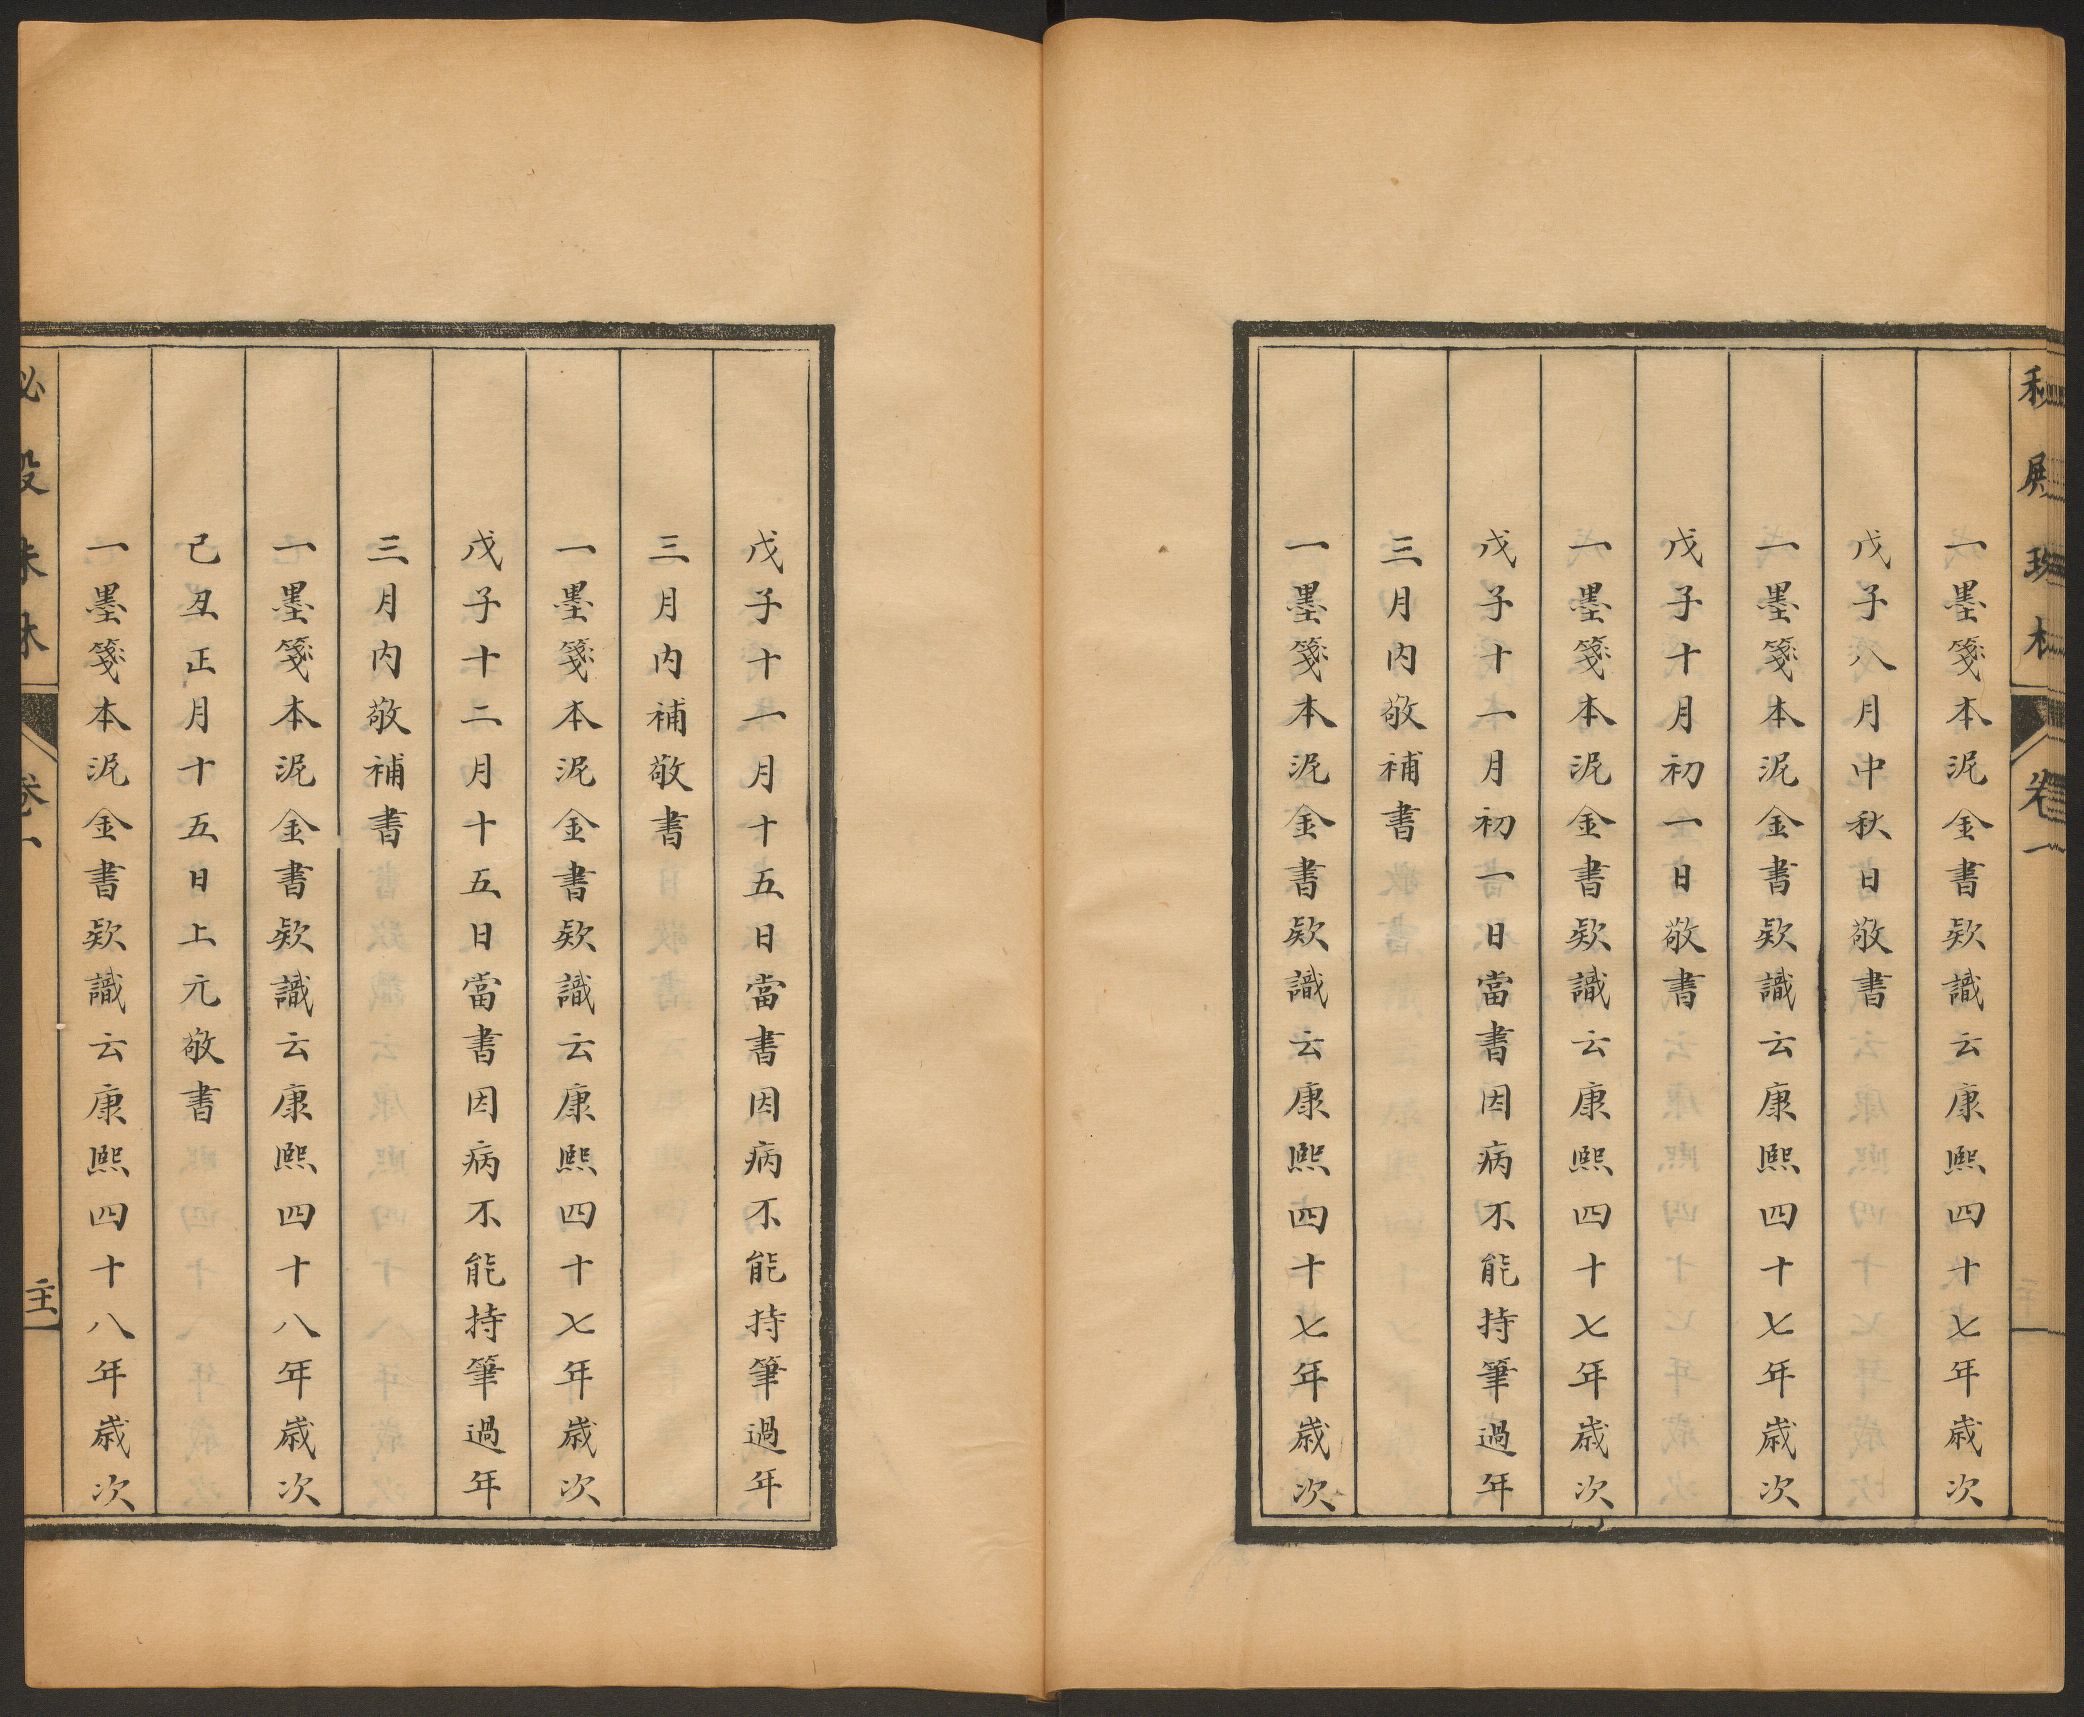 一墨箋本泥金書欵識云康熙四十七年歳次
戊子八月中秋日敬書
一墨箋本泥金書欵識云康熙四十七年歳次
戊子十月初一日敬書
一墨箋本泥金書欵識云康熙四十七年歳次
戊子十一月初一日當書因病不能持筆過年
三月內敬補書
一墨箋本泥金書欵識云康熙四十七年歳次
戊子十一月十五日當書因病不能持筆過年
三月內補敬書
一墨箋本泥金書欵識云康熙四十七年歳次
戊子十二月十五日當書因病不能持筆過年
三月內敬補書
一墨箋本泥金書欵識云康熙四十八年歳次
己丑正月十五日上元敬書
一墨箋本泥金書欵識云康熙四十八年歳次
秘殿珠林 卷一